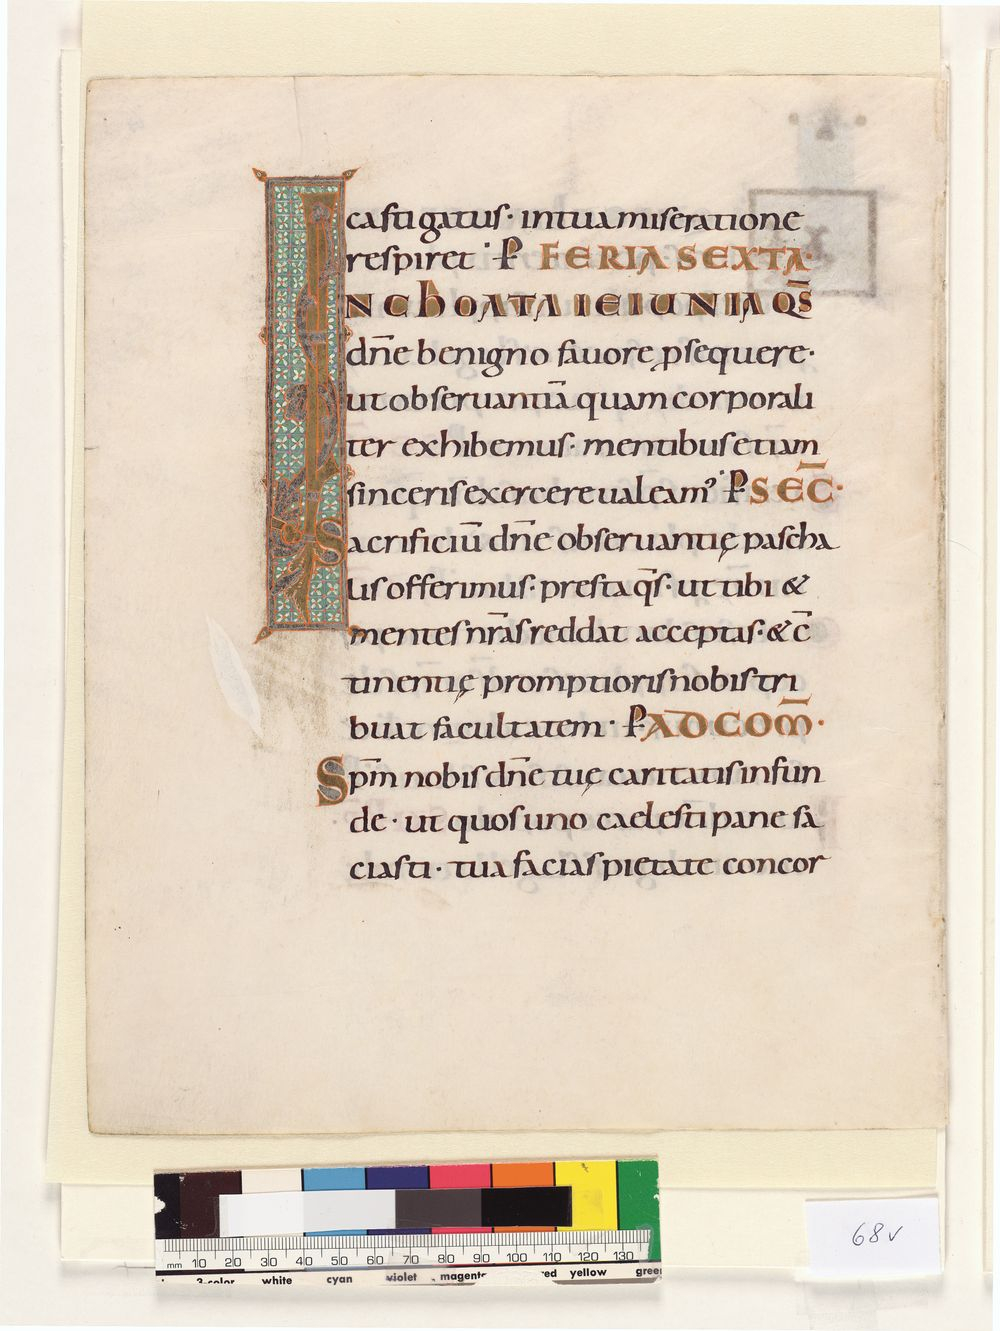 castigatus· in tua miseratione
respiret· P̄ FERIA SEXTA·
INCHOATA IEIUNIA QS̄
dn̄e benigno fauore ꝑsequere·
ut obseruantiā quam corporali
ter exhibemus· mentibus etiam
sinceris exercere ualeamꝰ P̄ SEC̄·
Sacrificiū dn̄e obseruantię pascha
lis offerimus· presta qs̄· ut tibi &
mentes nr̄as reddat acceptas· & c̄
tinentię promptioris nobis tri
buat facultatem· P̄ AD COM̄·
Sp̄m nobis dn̄e tuę caritatis infun
de· ut quos uno caelesti pane sa
ciasti· tua facias pietate concor
68v
mm 10 20 30 40 50 60 70 80 90 100 110 120 130
3-color white cyan violet magenta red yellow green